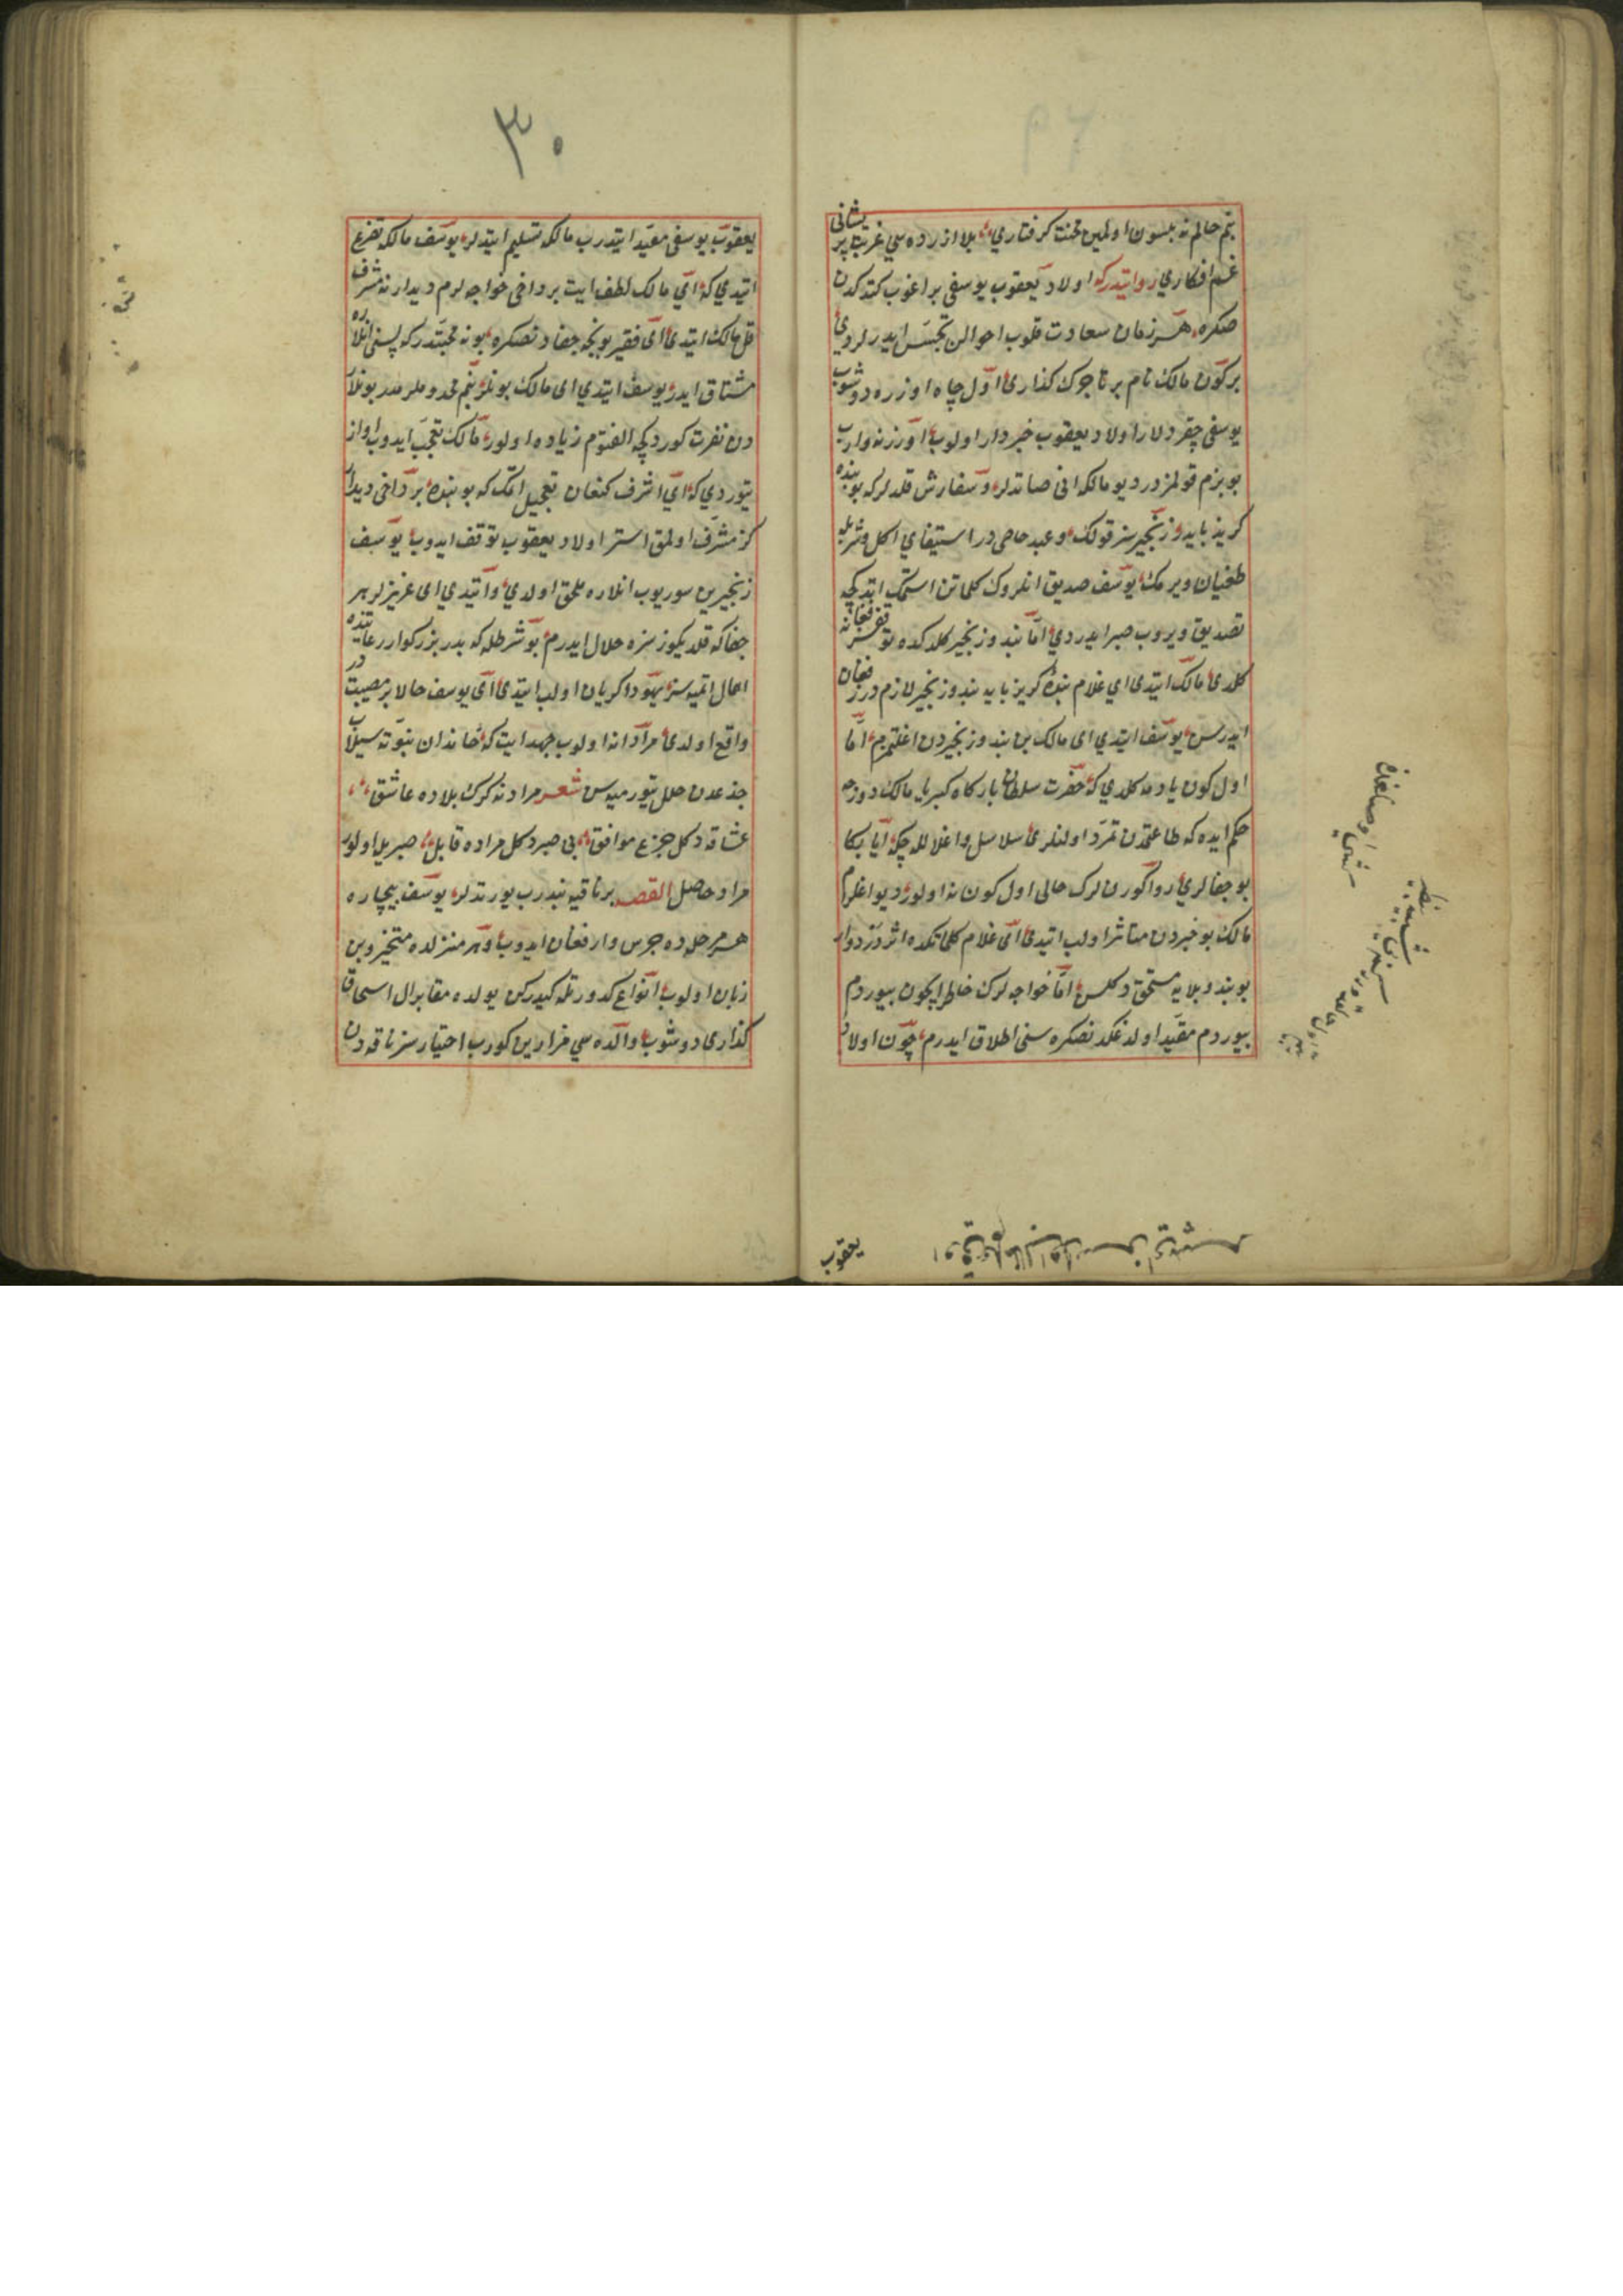 بنم حالم نه بلسون اولمین محنت کرفتاری بلا ازرده سی غربت پریشانی
غم افکاری روایتدرکه اولاد یعقوب یوسفی براغوب کتدکدن
صکره هر زمان سعادت قلوب احوالن تجسس ایدرلردی
برکون مالک نام بر تاجرک کذاری اول چاه اوزره دوشوب
یوسفی چقردلار اولاد یعقوب خبردار اولوب اوزرنه واروب
بو بزم قولمزدر دیو مالکه انی صاتدلر و سفارش قلدلرکه بو بنده
کریز پایدر زنجیرسز قولک و عبد عاصی در استیفای اکل و شربله
طغیان ویرمک یوسف صدیق انلروک کلماتن استماع ایتدکچه
تصدیق ویروب صبر ایدردی اما بند و زنجیر کلدکده
کلدی مالک ایتدی ای غلام بنده کریز پایه بند و زنجیر لازمدر فغان
ایدرسن یوسف ایتدی ای مالک بن بند و زنجیردن اغلمزم اما
اول کون یادمه کلدی که حضرت سلطان بارکاه کبریا مالک دوزخه
حکم ایده که طاعتمدن تمرد اولنلری سلاسل و اغلاله چکه ایا بکا
بو جفالری روا کورنلرک حالی اول کون نه اولور دیو اغلرم
مالک بو خبردن متاثر اولب ایتدی ای غلام کلماتکده اثر درد وار
بو بند و بلایه مستحق دکلسن اما خواجه لرک خاطرایچون بیوردم
بیوردم مقید اولدغکدنصکره سنی اطلاق ایدرم چون اولاد
یعقوب
۳۰
یعقوب یوسفی مقید ایتدرب مالکه تسلیم ایتدلر یوسف مالکه تضرع
ایتدی که ای مالک لطف ایت بر داخی خواجه لرم دیدارنه مشرف
قل مالک ایتدی ای فقیر بونجه جفادنصکره بو نه محبتدرکه سنی انلاره
مشتاق ایدر یوسف ایتدی ای مالک بونلر بنم مخدوملرمدر بونلار
دن نفرت کوردکچه الفتوم زیاده اولور مالک تعجب ایدوب اواز
یتوردی که ای اشرف کنعان تعجیل اتمک که بو بنده بر داخی دیدار
کز مشرف اولمق استر اولاد یعقوب توقف ایدوب یوسف
زنجیرین سوریوب انلاره ملحق اولدی و ایتدی ای عزیزلر هر
جفاکه قلدیکوز سزه حلال ایدرم بو شرطله که پدر بزرکوار رعایتنده
اهمال اتمیه سز یهودا کریان اولب ایتدی ای یوسف حالا بر مصیبتدر
واقع اولدی مردانه اولوب جهد ایت که خاندان نبوته سیلاب
جذعدن خلل یتورمیه سن شعر مراد نه کرک بلاده عاشق
عشاقه دکل جزع موافق بی صبر دکل مراده قابل صبریله اولور
مراد حاصل القصه بر ناقیه بندرب یورتدلر یوسف بیچاره
هر مرحله ده جرس وار فغان ایدوب و هر منزلده
زبان اولوب انواع کدورتله کیدرکن یولده مقابر ال اسحاقه
کذاری دوشوب والده سی مزارین کورب اختیارسز ناقه دن